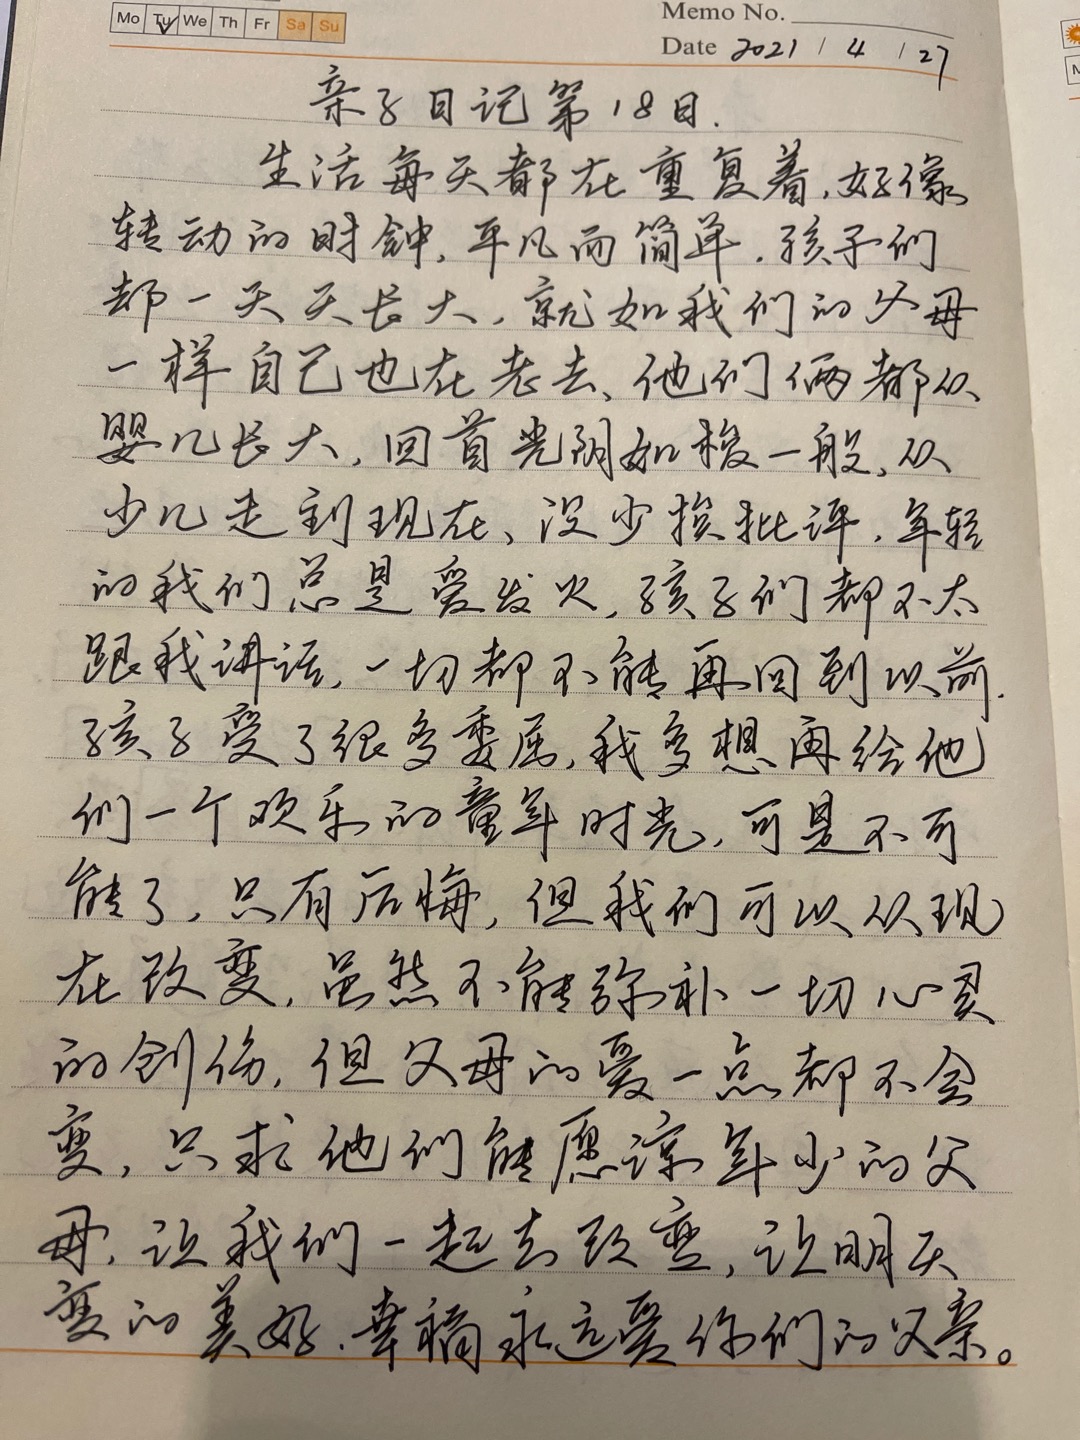 Mo Tu We Th Fr Sa Su
Memo No.
Date 2021 / 4 / 27
亲子日记第18日.
生活每天都在重复着,好像
转动的时钟,平凡而简单.孩子们
却一天天长大,就如我们的父母
一样自己也在老去、他们俩都从
婴儿长大,回首光阴如梭一般,从
少儿走到现在、没少挨批评,年轻
的我们总是爱发火,孩子们都不太
跟我讲话,一切都不能再回到以前.
孩子受了很多委屈,我多想再给他
们一个欢乐的童年时光,可是不可
能了,只有后悔,但我们可以从现
在改变,虽然不能弥补一切心灵
的创伤,但父母的爱一点都不会
变,只求他们能愿谅年少的父
母,让我们一起去改变,让明天
变的美好.幸福永远爱你们的父亲。